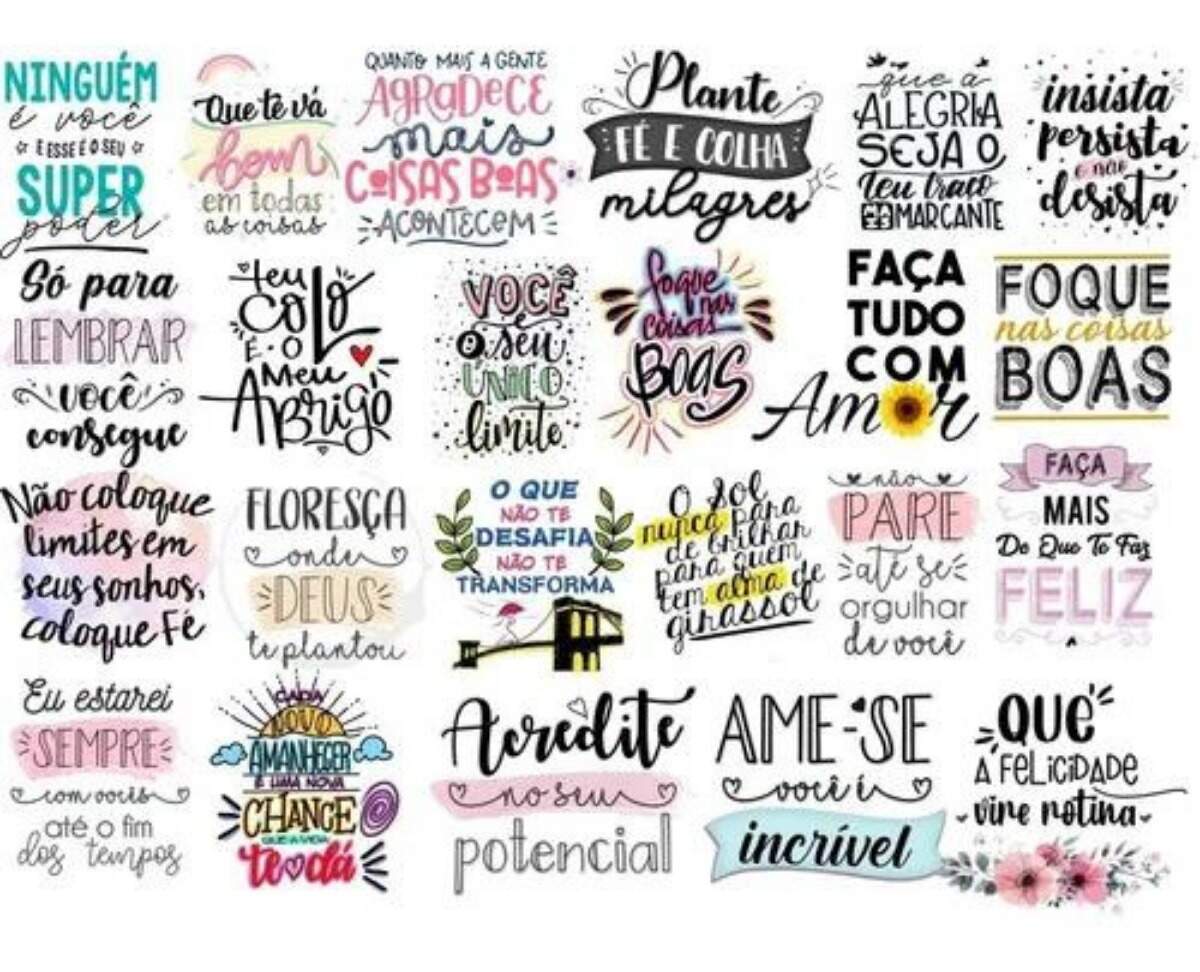 NINGUÉM
é você
E ESSE É O SEU
SUPER
poder
Que te vá
bem
em todas
as coisas
QUANTO MAIS A GENTE
AGRADECE
mais
COISAS BOAS
ACONTECEM
Plante
FÉ E COLHA
milagres
que a
ALEGRIA
SEJA O
teu traço
MARCANTE
insista
persista
e não
desista
Só para
LEMBRAR
você
consegue
teu
COLO
É O
MEU
ABRIGO
VOCÊ
é
o seu
ÚNICO
limite
foque
nas
coisas
BOAS
FAÇA
TUDO
COM
Amor
FOQUE
nas coisas
BOAS
Não coloque
limites em
seus sonhos,
coloque Fé
FLORESÇA
onde
DEUS
te plantou
O QUE
NÃO TE
DESAFIA
NÃO TE
TRANSFORMA
O Sol
nunca para
de brilhar
para quem
tem alma de
girassol
não
PARE
até se
orgulhar
de você
FAÇA
MAIS
De Que Te Faz
FELIZ
Eu estarei
SEMPRE
com vocês
até o fim
dos tempos
CADA
NOVO
AMANHECER
É UMA NOVA
CHANCE
QUE A VIDA
te dá
Acredite
no seu
potencial
AME-SE
você é
incrível
QUE
A FELICIDADE
vire rotina